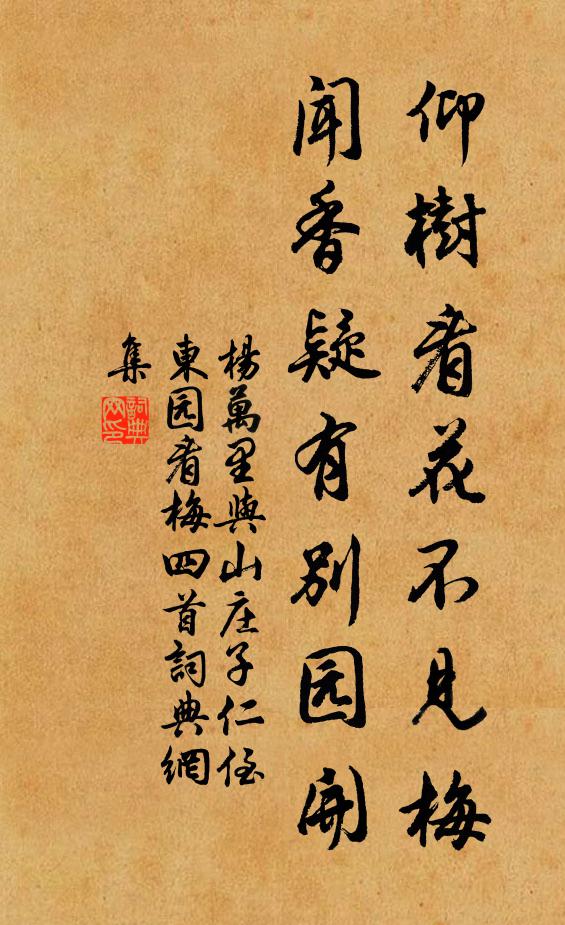 仰樹看花不见梅
闻香疑有别园開
楊萬里與山庄子仁侄
東园看梅四首詞典網
集
詞典
网印